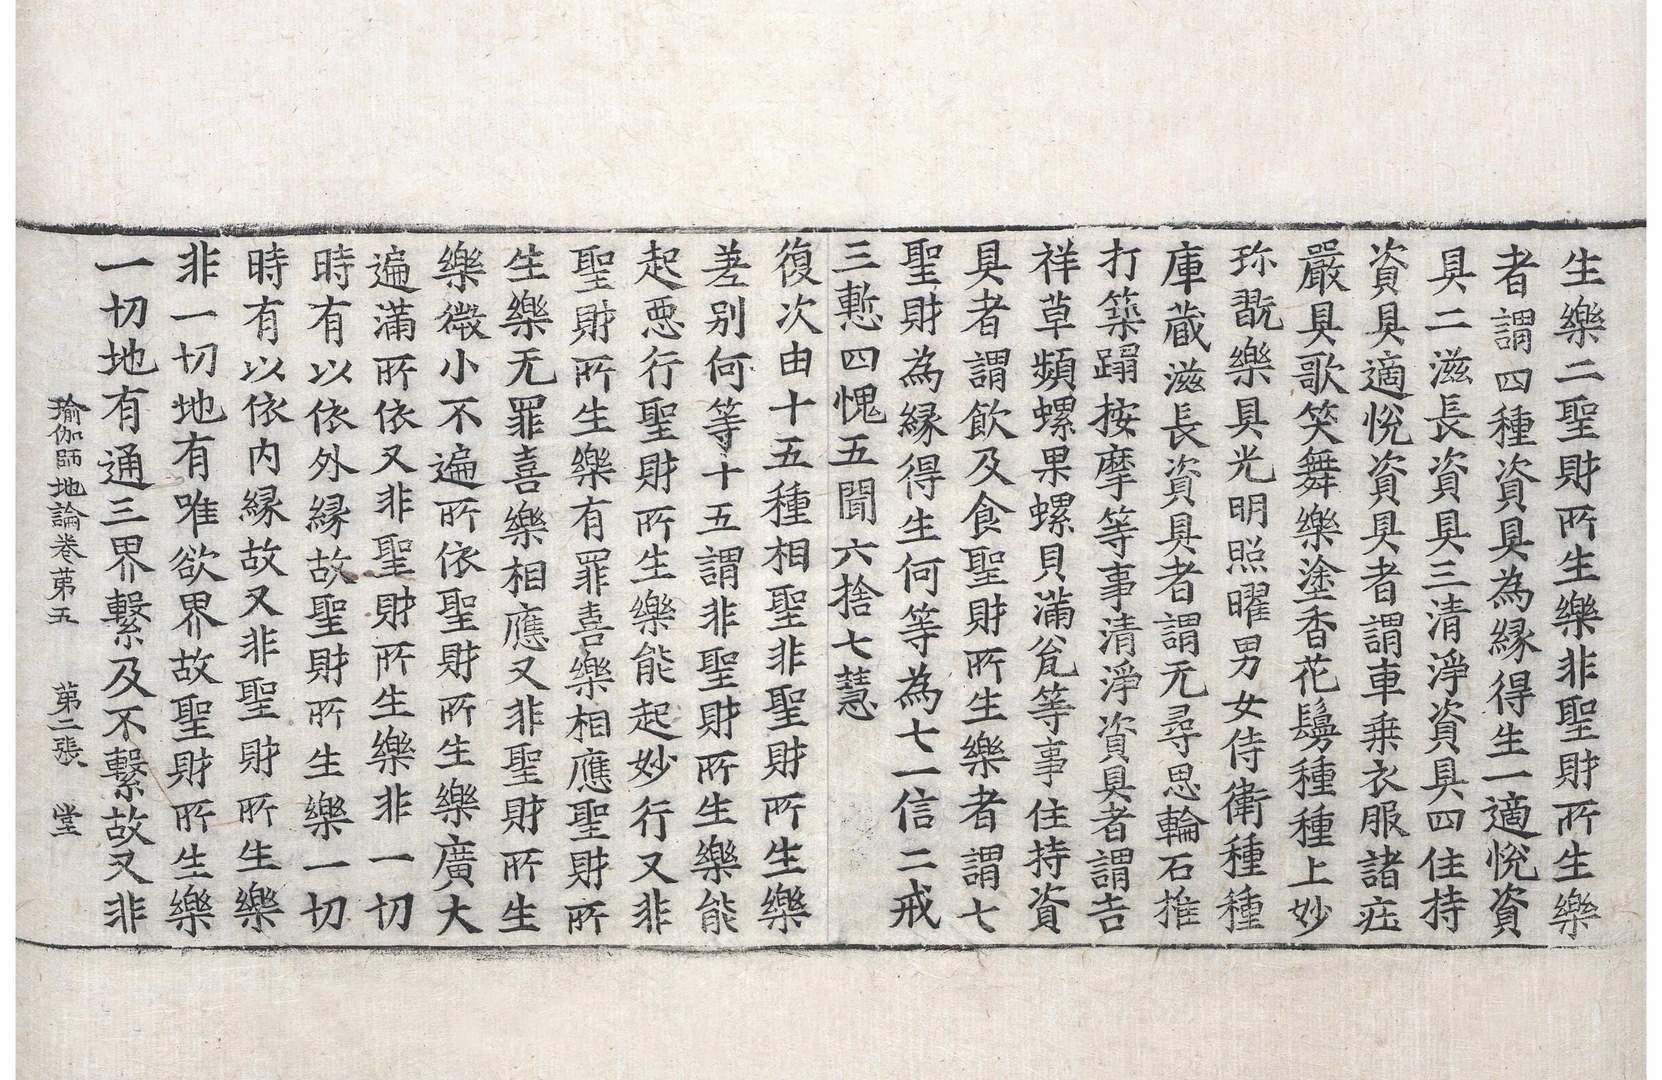 生樂二聖財所生樂非聖財所生樂
者謂四種資具為縁得生一適悅資
具二滋長資具三清淨資具四住持
資具適悅資具者謂車乗衣服諸㽵
嚴具歌笑舞樂塗香花鬘種種上妙
珎翫樂具光明照曜男女侍衛種種
庫蔵滋長資具者謂无尋思輪石推
打築蹋按摩等事清淨資具者謂吉
祥草頻螺果螺貝滿瓮等事住持資
具者謂飲及食聖財所生樂者謂七
聖財為縁得生何等為七一信二戒
三慙四愧五聞六捨七慧
復次由十五種相聖非聖財所生樂
差别何等十五謂非聖財所生樂能
起惡行聖財所生樂能起妙行又非
聖財所生樂有罪喜樂相應聖財所
生樂无罪喜樂相應又非聖財所生
樂微小不遍所依聖財所生樂廣大
遍滿所依又非聖財所生樂非一切
時有以依外縁故聖財所生樂一切
時有以依内縁故又非聖財所生樂
非一切地有唯欲界故聖財所生樂
一切地有通三界繫及不繫故又非
瑜伽師地論卷苐五 苐二張 堂